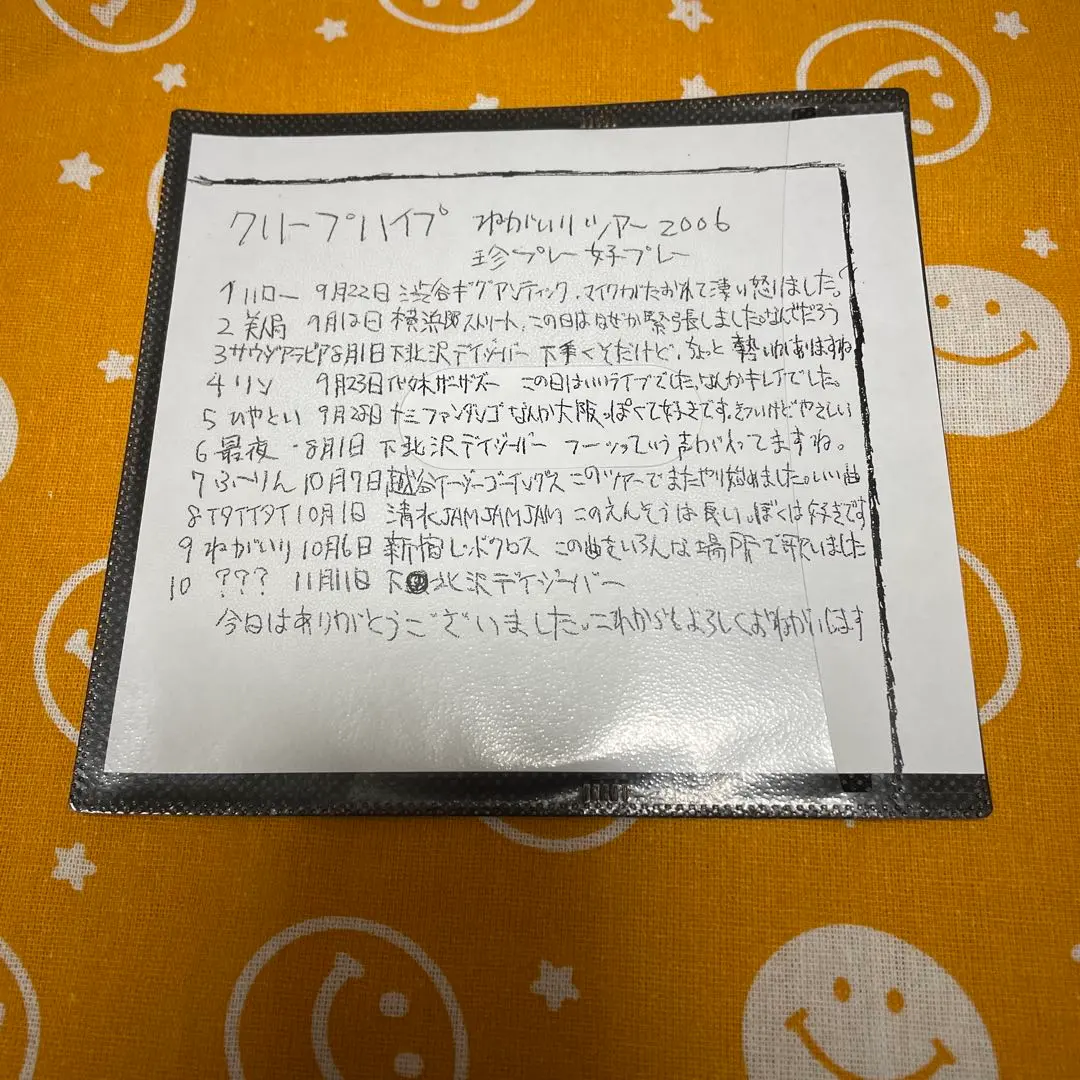 クリープハイプ ねがいりツアー2006
珍プレー好プレー
1 ハロー 9月22日 渋谷ギグアンティック、マイクがたおれて凄い怒りました。
2 美人局 9月12日 横浜 ストリート、この日はなぜか緊張しました。なんでだろう
3 サウジアラビア 8月1日 下北沢デイジーバー 下手くそだけど、ちょっと勢いがありますね
4 リン 9月23日 代々木ザーザズー この日はいいライブでした。なんかキレイでした。
5 ひやとい 9月28日 十三ファンダンゴ なんか大阪っぽくて好きです。きついけどやさしい
6 最夜 8月1日 下北沢デイジーバー フーッっていう声が入ってますね。
7 ふーりん 10月7日 越谷イージーゴーイングス このツアーでまたやり始めました。いい曲
8 イタイイタイ 10月1日 清水JAMJAMJAM このえんそうは長い。ぼくは好きです
9 ねがいり 10月6日 新宿レッドクロス この曲をいろんな場所で歌いました
10 ??? 11月11日 下北沢デイジーバー
今日はありがとうございました。これからもよろしくおねがいします